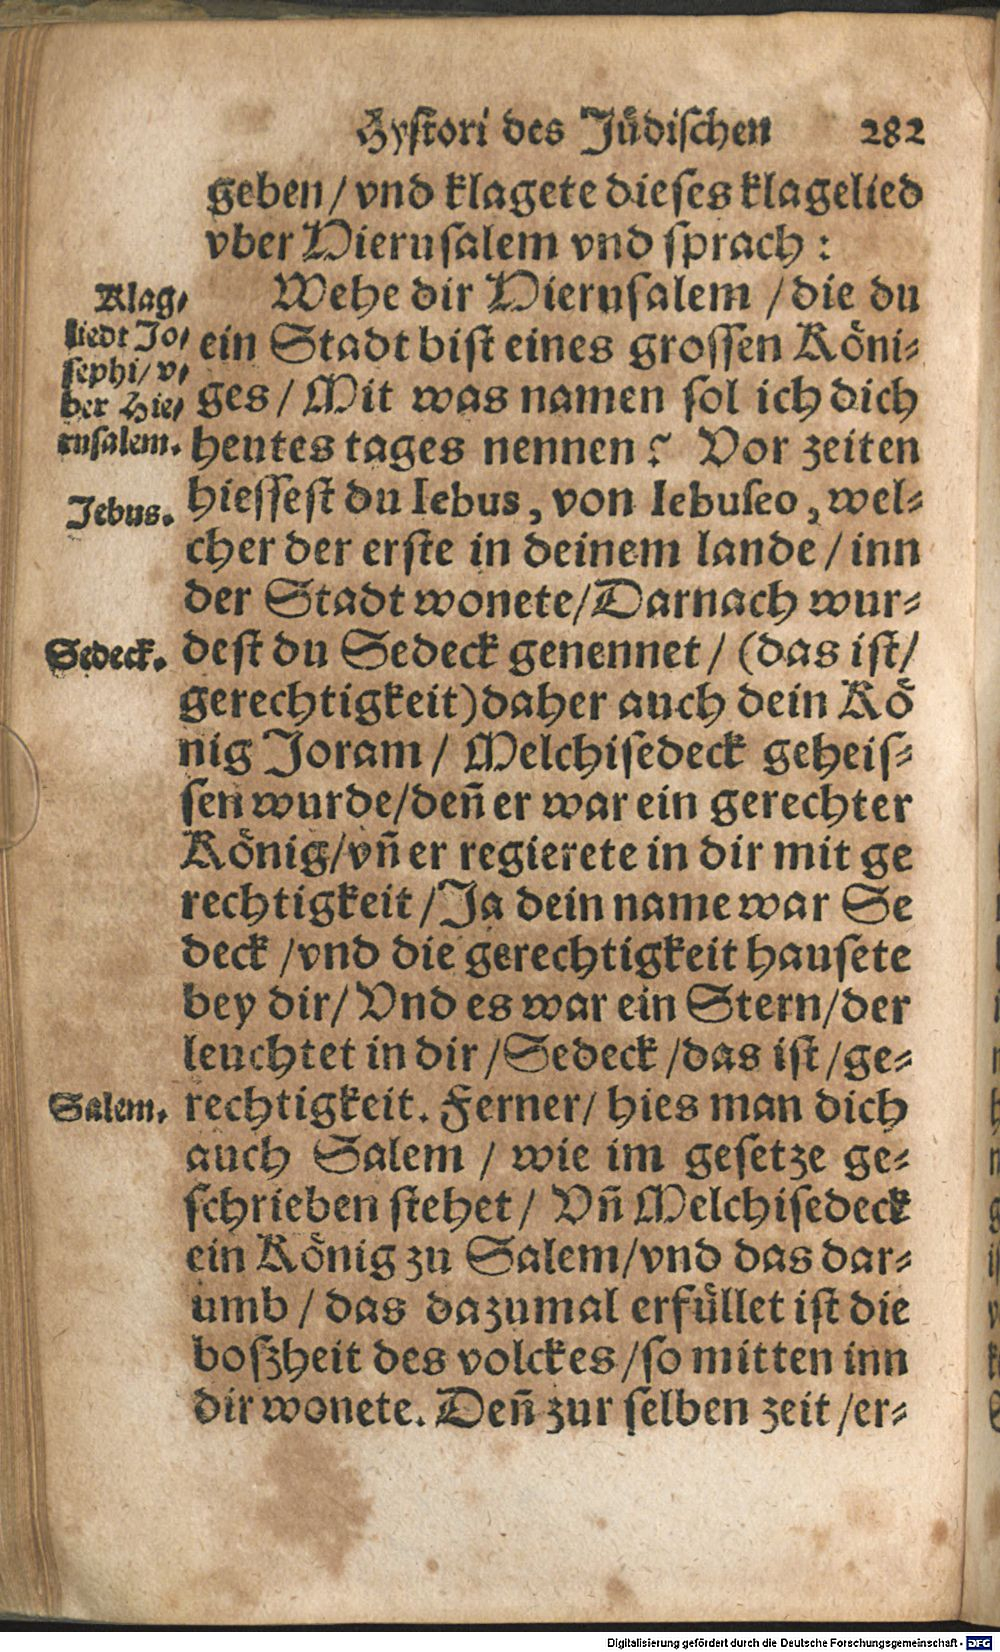 Hystori des Jüdischen 282
geben / vnd klagete dieses klagelied
vber Hierusalem vnd sprach :
Klag⸗
liedt Jo⸗
sephi / v⸗
ber Hie⸗
rusalem.
Wehe dir Hierusalem / die du
ein Stadt bist eines grossen Köni⸗
ges / Mit was namen sol ich dich
heutes tages nennen? Vor zeiten
Jebus.
hiessest du Iebus, von Iebuseo, wel⸗
cher der erste in deinem lande / inn
der Stadt wonete / Darnach wur⸗
Sedeck.
dest du Sedeck genennet / (das ist /
gerechtigkeit) daher auch dein Kö
nig Joram / Melchisedeck geheis⸗
sen wurde / deñ er war ein gerechter
König / vñ er regierete in dir mit ge
rechtigkeit / Ja dein name war Se
deck / vnd die gerechtigkeit hausete
bey dir / Vnd es war ein Stern / der
leuchtet in dir / Sedeck / das ist / ge⸗
Salem.
rechtigkeit. Ferner / hies man dich
auch Salem / wie im gesetze ge⸗
schrieben stehet / Vñ Melchisedeck
ein König zu Salem / vnd das dar⸗
umb / das dazumal erfüllet ist die
boszheit des volckes / so mitten inn
dir wonete. Deñ zur selben zeit / er⸗
Digitalisierung gefördert durch die Deutsche Forschungsgemeinschaft - DFG